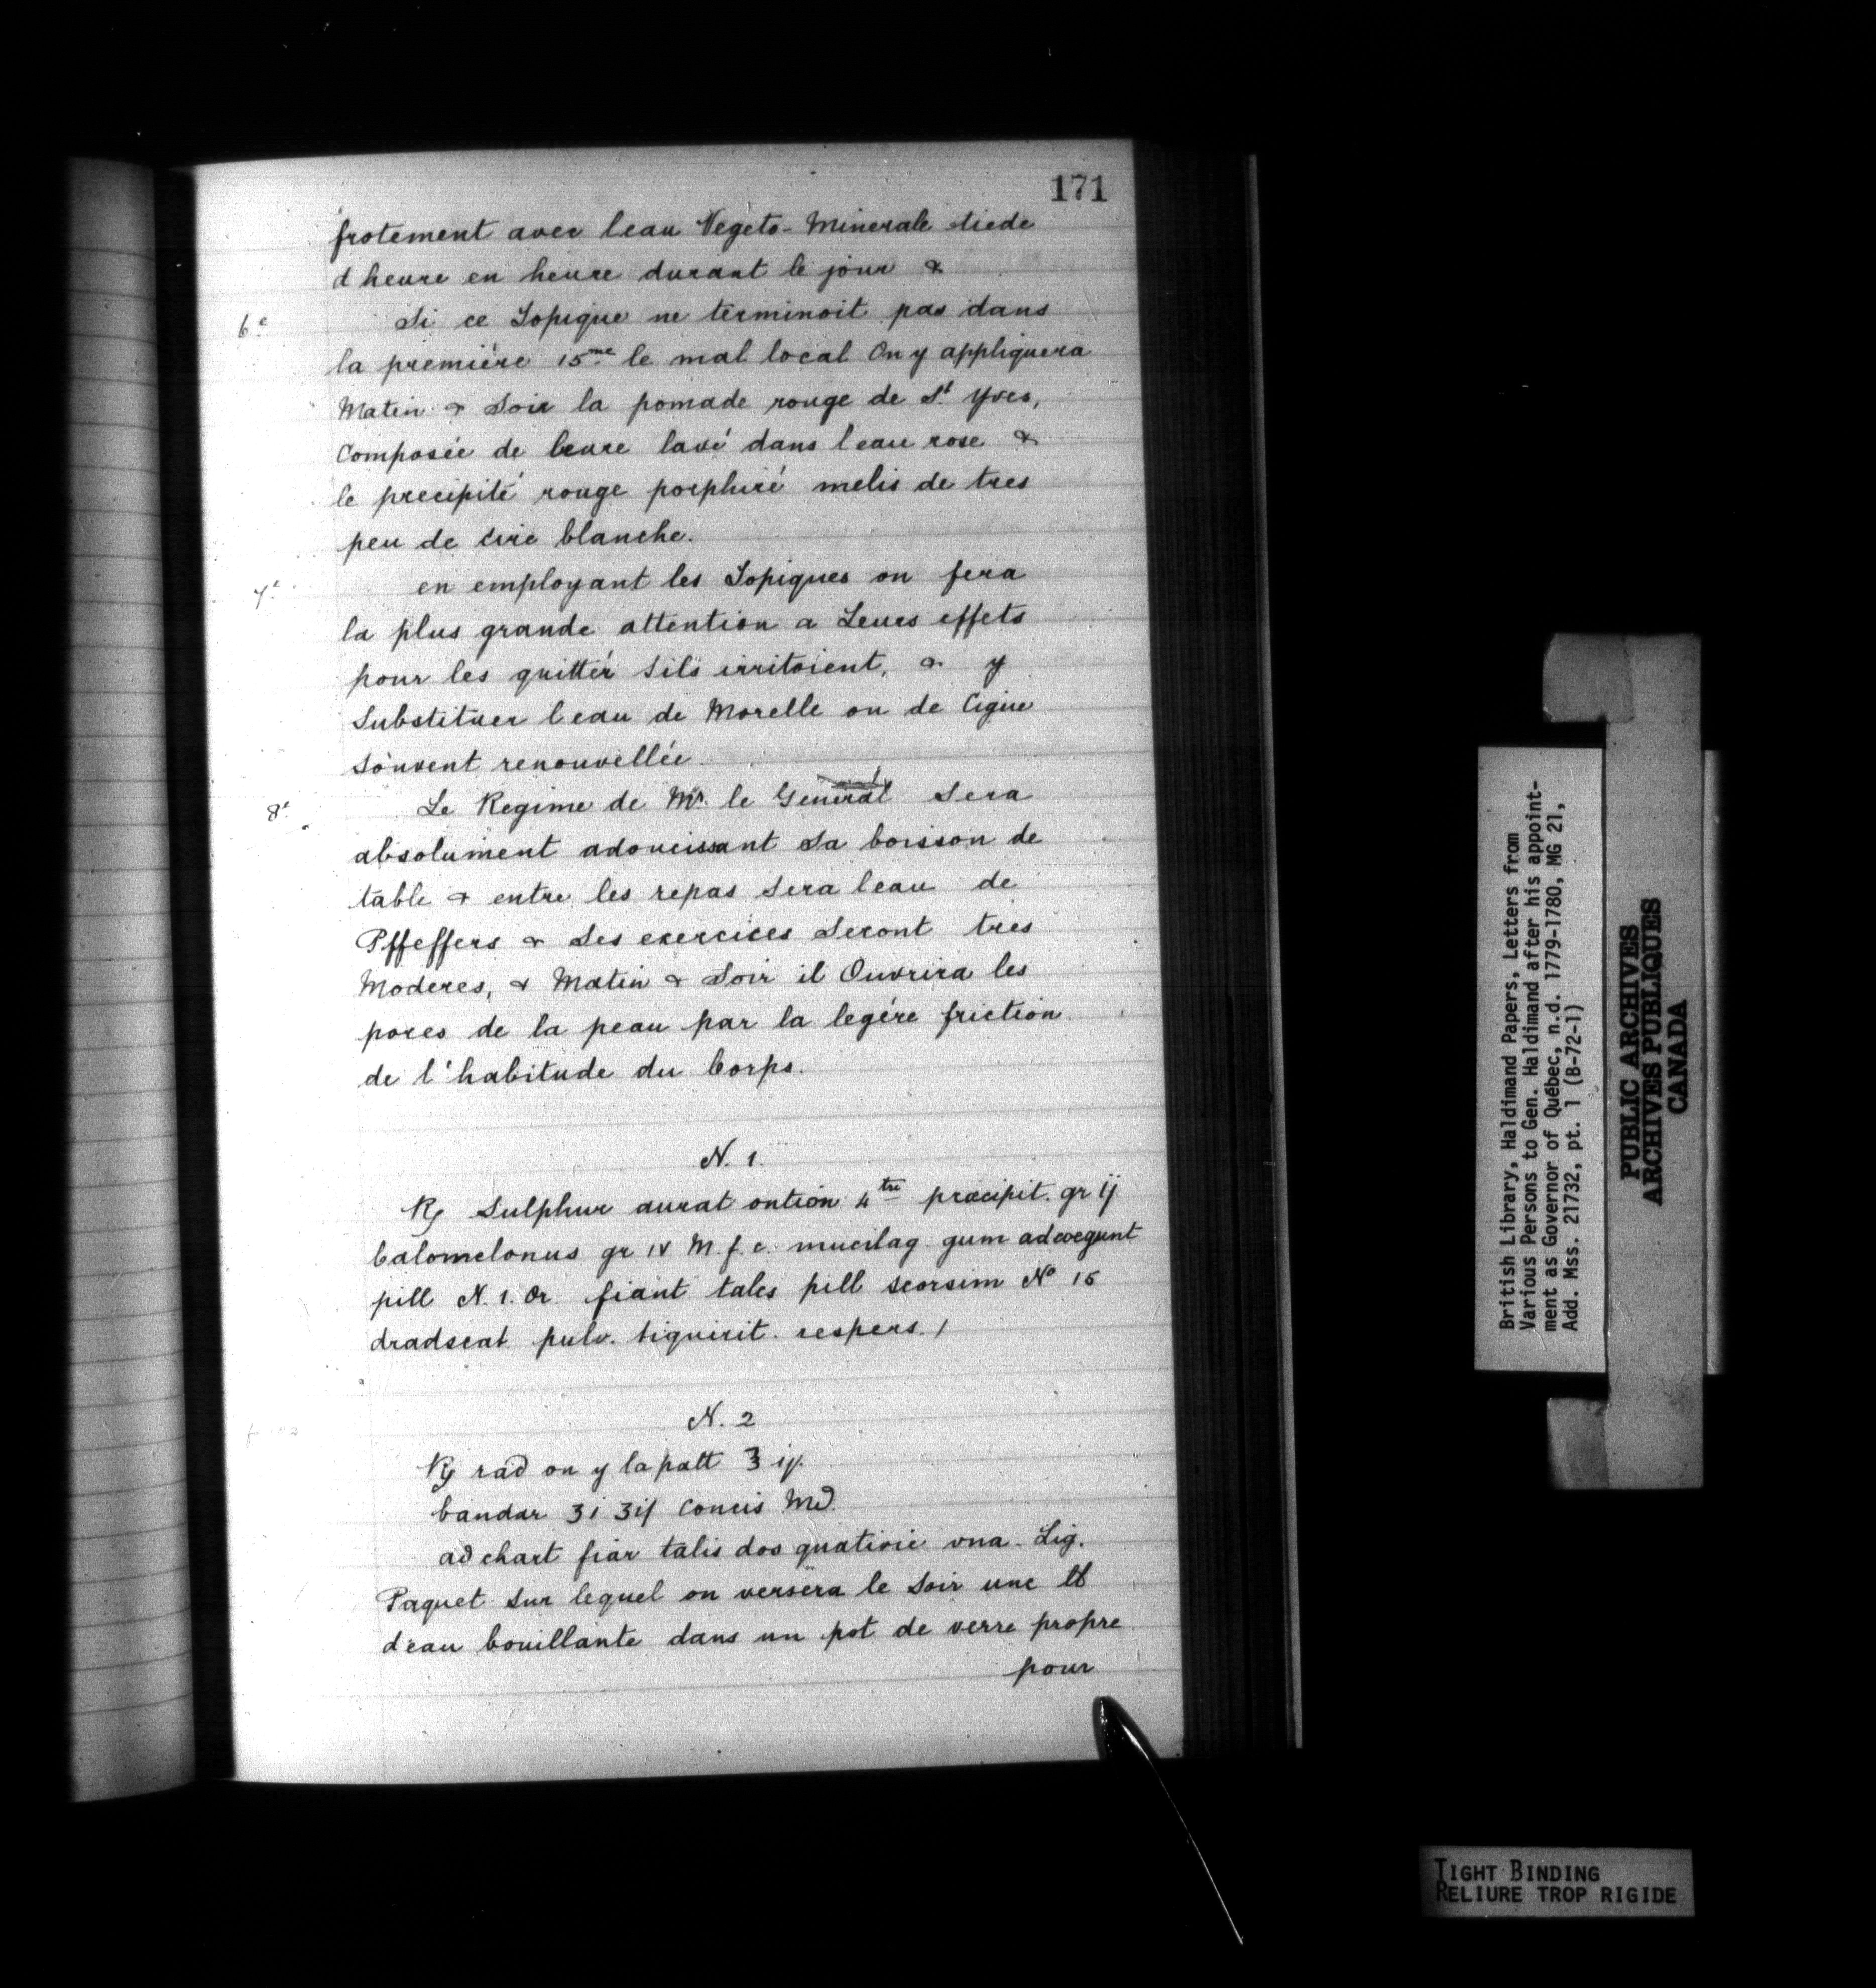 171
frotement avec leau Vegeto-Minerale tiede
d heure en heure durant le jour &
6e Si ce Topique ne terminoit pas dans
la première 15me le mal local On y appliquera
Matin & Soir la pomade rouge de St Yves,
Composée de beure lavé dans l eau rose &
le precipité rouge porphiré melis de tres
peu de cire blanche.
7e en employant les Topiques on fera
la plus grande attention a Leurs effets
pour les quittér Sils irritoient, & y
Substituer l eau de Morelle ou de Cigue
souvent renouvellée.
8e Le Regime de Mr. le General Sera
absolument adoucissant Sa boisson de
table & entre les repas Sera leau de
Pffeffers & Ses exercices Seront tres
Moderes, & Matin & Soir il Ouvrira les
pores de la peau par la legére friction
de l'habitude du Corps.
N. 1.
R Sulphur aurat ontion 4tre præcipit. gr ij
Calomelonus gr IV M. f. c. mucilag. gum adwegunt
pill N. 1. Or. fiant tales pill seorsim No 15
dradseat pulv. tiquirit. respers. /
N. 2
R rad on y la patt ʒ ij.
Candar ʒi ʒij Concis Md.
ad chart fiar talis dos quatirie una. Lig.
Paquet Sur lequel on versera le Soir une lb
d'eau bouillante dans un pot de verre propre
pour
British Library, Haldimand Papers, Letters from
Various Persons to Gen. Haldimand after his appoint-
ment as Governor of Québec, n.d. 1779-1780, MG 21,
Add. Mss. 21732, pt. 1 (B-72-1)
PUBLIC ARCHIVES
ARCHIVES PUBLIQUES
CANADA
TIGHT BINDING
RELIURE TROP RIGIDE